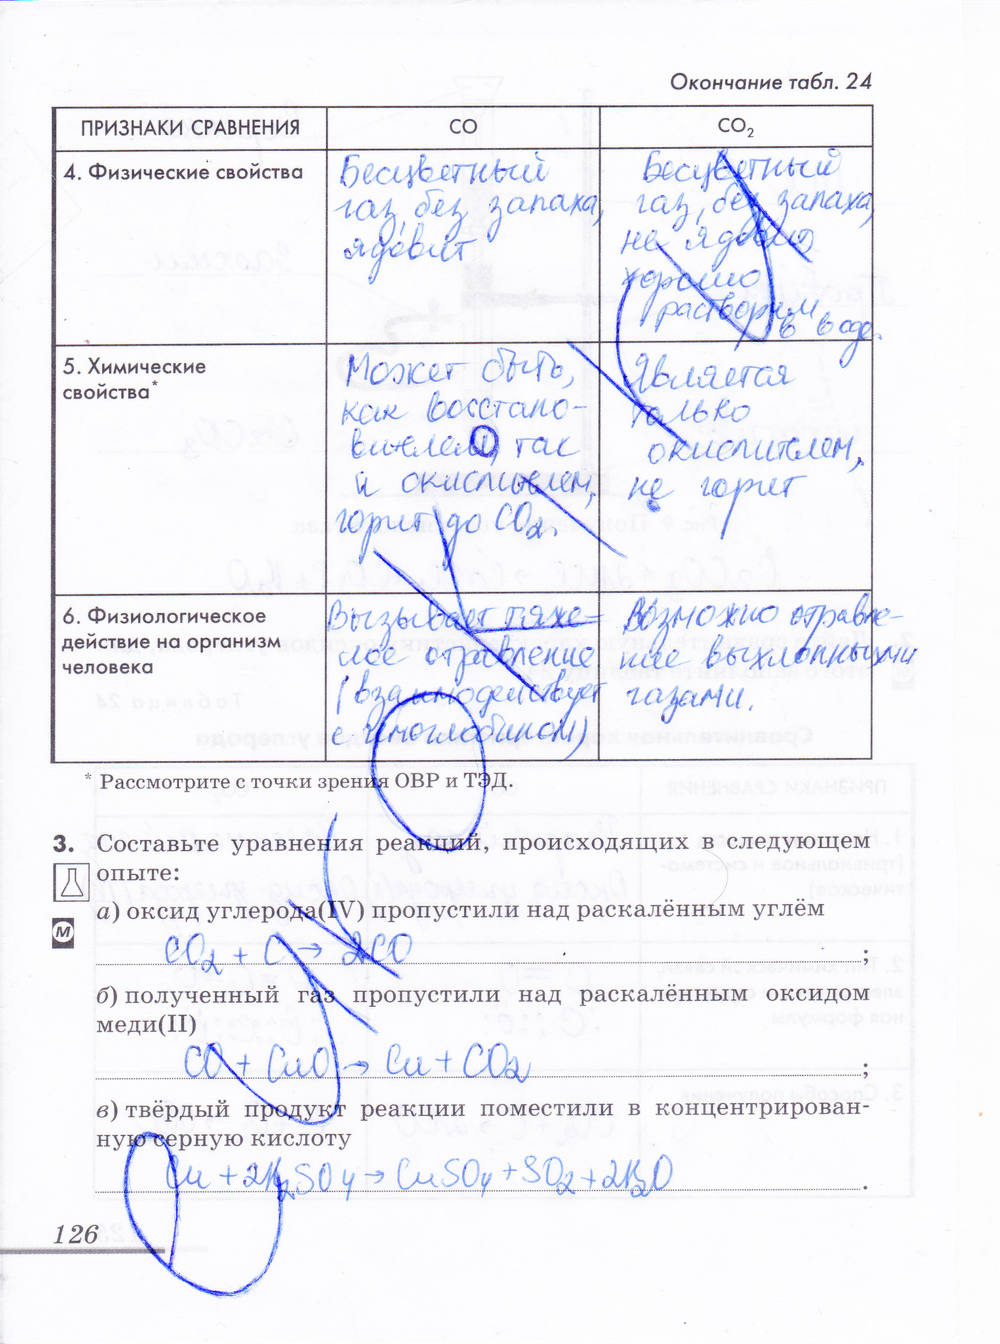 Окончание табл. 24
ПРИЗНАКИ СРАВНЕНИЯ CO CO₂
4. Физические свойства
Бесцветный
газ, без запаха,
ядовит
Бесцветный
газ, без запаха,
не ядовит
хорошо
растворим
в воде.
5. Химические
свойства*
Может быть,
как восстано-
вителем, так
и окислителем,
горит до CO₂.
Является
только
окислителем,
не горит
6. Физиологическое
действие на организм
человека
Вызывает тяже-
лое отравление
(взаимодействует
с гемоглобином)
Возможно отравле-
ние выхлопными
газами.
* Рассмотрите с точки зрения ОВР и ТЭД.
3. Составьте уравнения реакций, происходящих в следующем
опыте:
а) оксид углерода(IV) пропустили над раскалённым углём
М
CO₂ + C → 2CO ;
б) полученный газ пропустили над раскалённым оксидом
меди(II)
CO + CuO → Cu + CO₂ ;
в) твёрдый продукт реакции поместили в концентрирован-
ную серную кислоту
Cu + 2H₂SO₄ → CuSO₄ + SO₂ + 2H₂O .
126